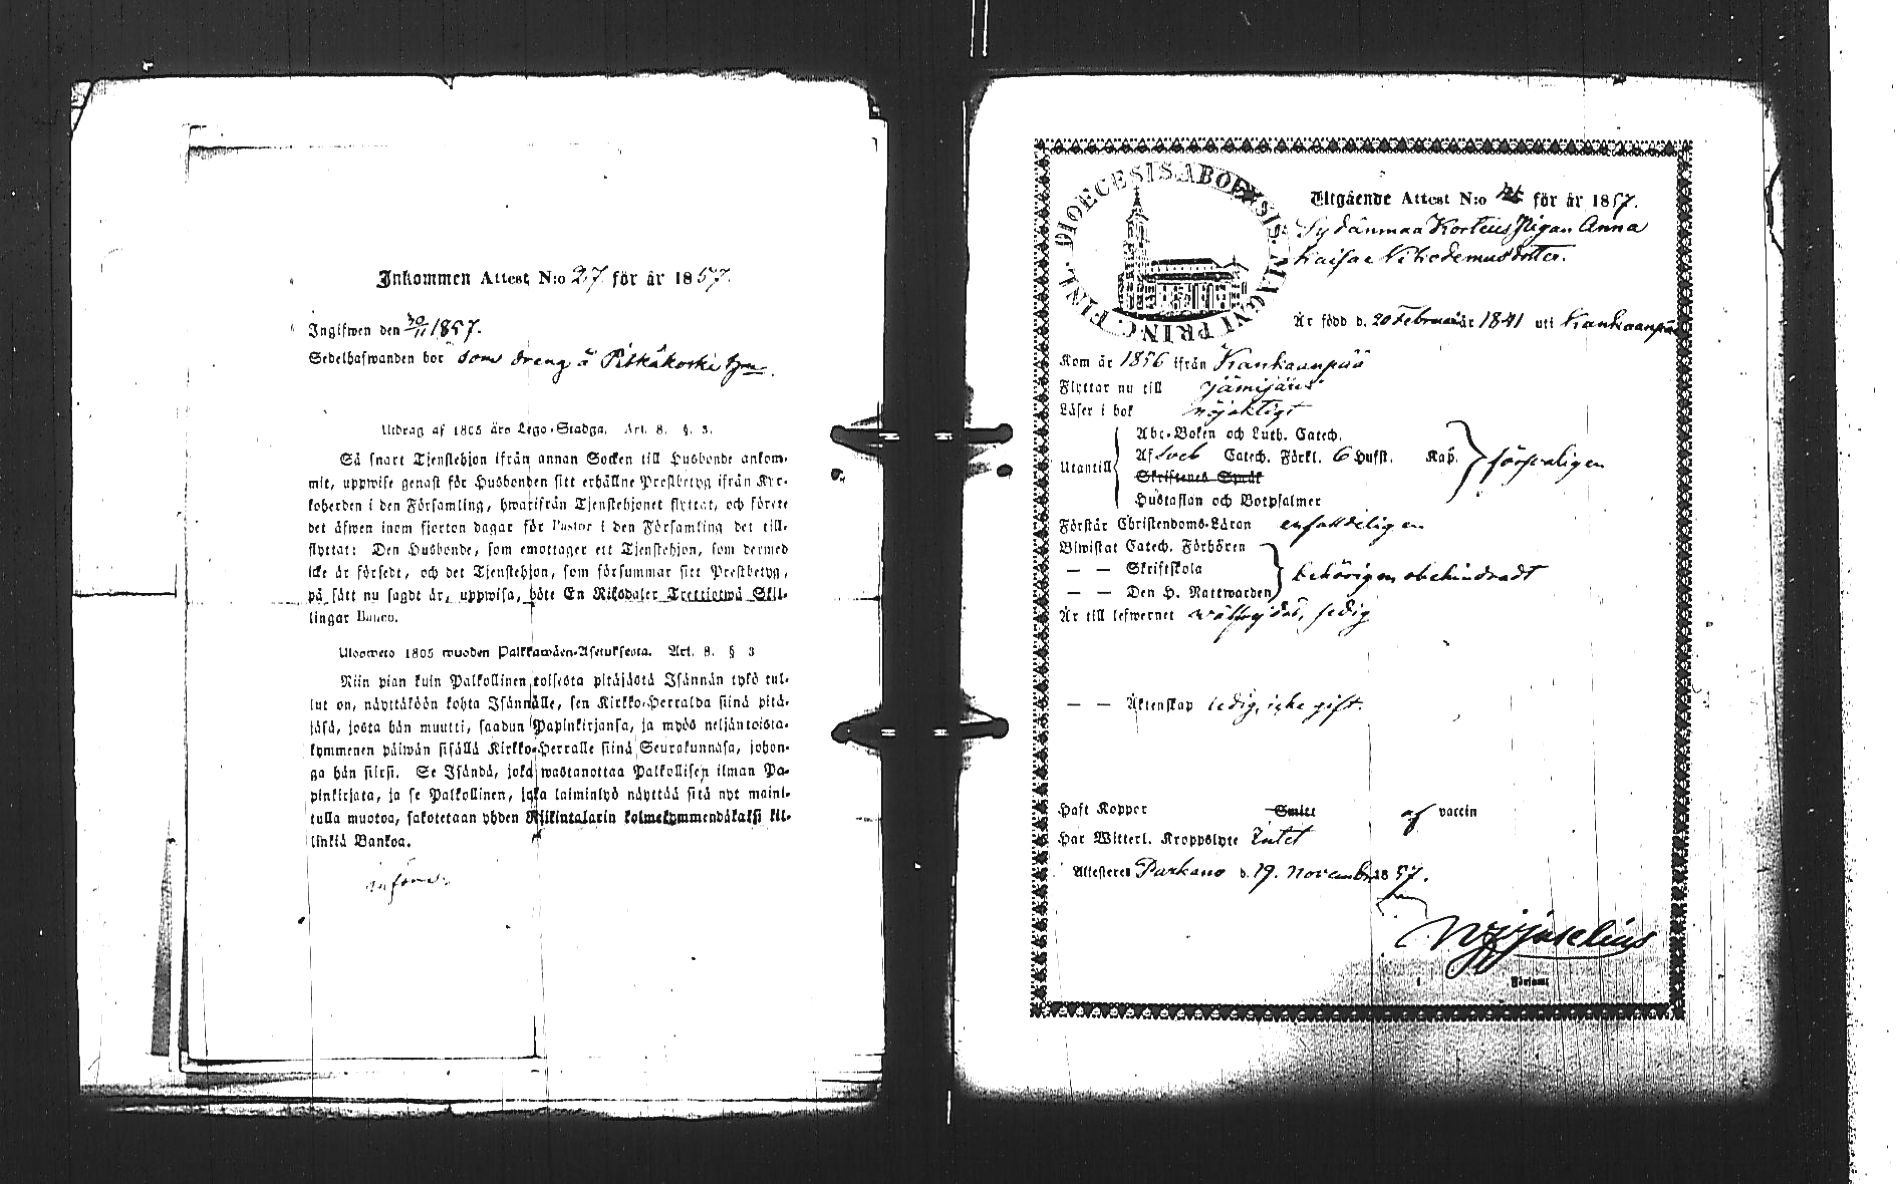 Inkommen Attest N:o 27 för år 1857.
Ingifwen den 30/11 1857.
Sedelhafwanden bor som dreng å Pitkäkoski
Utdrag af 1805 års Lego-Stadga. Art. 8. §. 3.
Så snart Tjenstehjon ifrån annan Socken till Husbonde ankom-
mit, uppwise genast för Husbonden sitt erhållne Prestbetyg ifrån Kyr-
koherden i den Församling, hwarifrån Tjenstehjonet flyttat, och förete
det äfwen inom fjorton dagar för Pastor i den Församling det till-
flyttat: Den Husbonde, som emottager ett Tjenstehjon, som dermed
icke är försedt, och det Tjenstehjon, som försummar sitt Prestbetyg,
på sätt nu sagdt är, uppwisa, böte En Riksdaler Trettiotwå Skil-
lingar Banco.
Ulosweto 1805 wuoden Palkkawäen-Asetuksesta. Art. 8. § 3
Niin pian kuin Palkollinen toisesta pitäjästä Isännän tykö tul-
lut on, näyttäköön kohta Isännälle, sen Kirkko-Herralda siinä pitä-
jäsä, josta hän muutti, saadun Papinkirjansa, ja myös neljäntoista-
kymmenen päiwän sisällä Kirkko-Herralle siinä Seurakunnasa, johon-
ga hän siirsi. Se Isändä, joka wastanottaa Palkollisen ilman Pa-
pinkirjata, ja se Palkollinen, joka laiminlyö näyttää sitä nyt maini-
tulla muotoa, sakotetaan yhden Riikintalarin kolmekymmendäkaksi kil-
linkiä Bankoa.
införd.
DIOECESIS ABOENSIS. MAGNI PRINC. FINL.
Utgående Attest N:o för år 1857.
Sydänmaa Korteus Pigan Anna
Kaisa Nikodemusdotter.
Är född d. 20 Februari år 1841 uti Kankaanpää
Kom år 1856 ifrån Kankaanpää
Flyttar nu till Jämijärvi
Läser i bok nöjaktigt
Utantill
Abc-Boken och Luth. Catech.
Af Sveb Catech. Förkl. 6 Hufst. Kap. försvarligen
Skriftenes Språk
Hustaflan och Botpsalmer
Förstår Christendoms-Läran enfaldeligen
Biwistat Catech. Förhören
— — Skriftskola behörigen obehindradt
— — Den H. Nattwarden
Är till lefwernet wälfrejdad, ledig
— — Äktenskap ledig, icke gift.
Haft Koppor Smitt af vaccin
Har Witterl. Kroppslyte Intet
Attesteras Parkano d. 19. November 1857.
i Församl